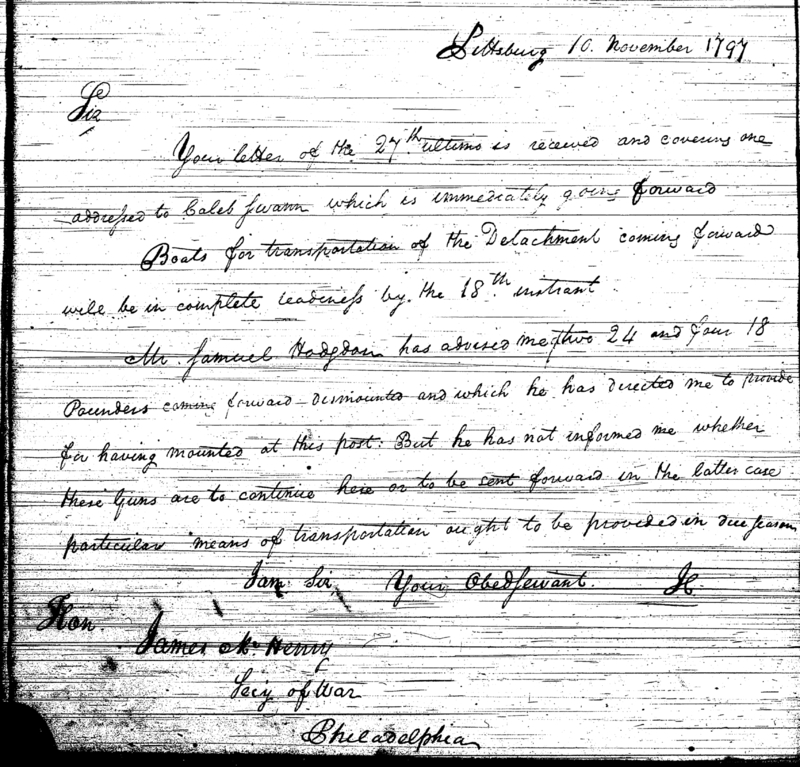 Pittsburg 10. November 1797
Sir
Your letter of the 27th ultimo is received and covering one
addressed to Caleb Swann which is immediately going forward
Boats for transportation of the Detachment coming forward
will be in complete readiness by the 18th instant
Mr. Samuel Hodgdon has advised me two 24 and four 18
Pounders coming forward dismounted and which he has directed me to provide
for having mounted at this post: But he has not informed me whether
these Guns are to continue here or to be sent forward in the latter case
particular means of transportation ought to be provided in due season
I am Sir Your Obed Servant.
Hon.
James Mc Henry
Secy of War
Philadelphia